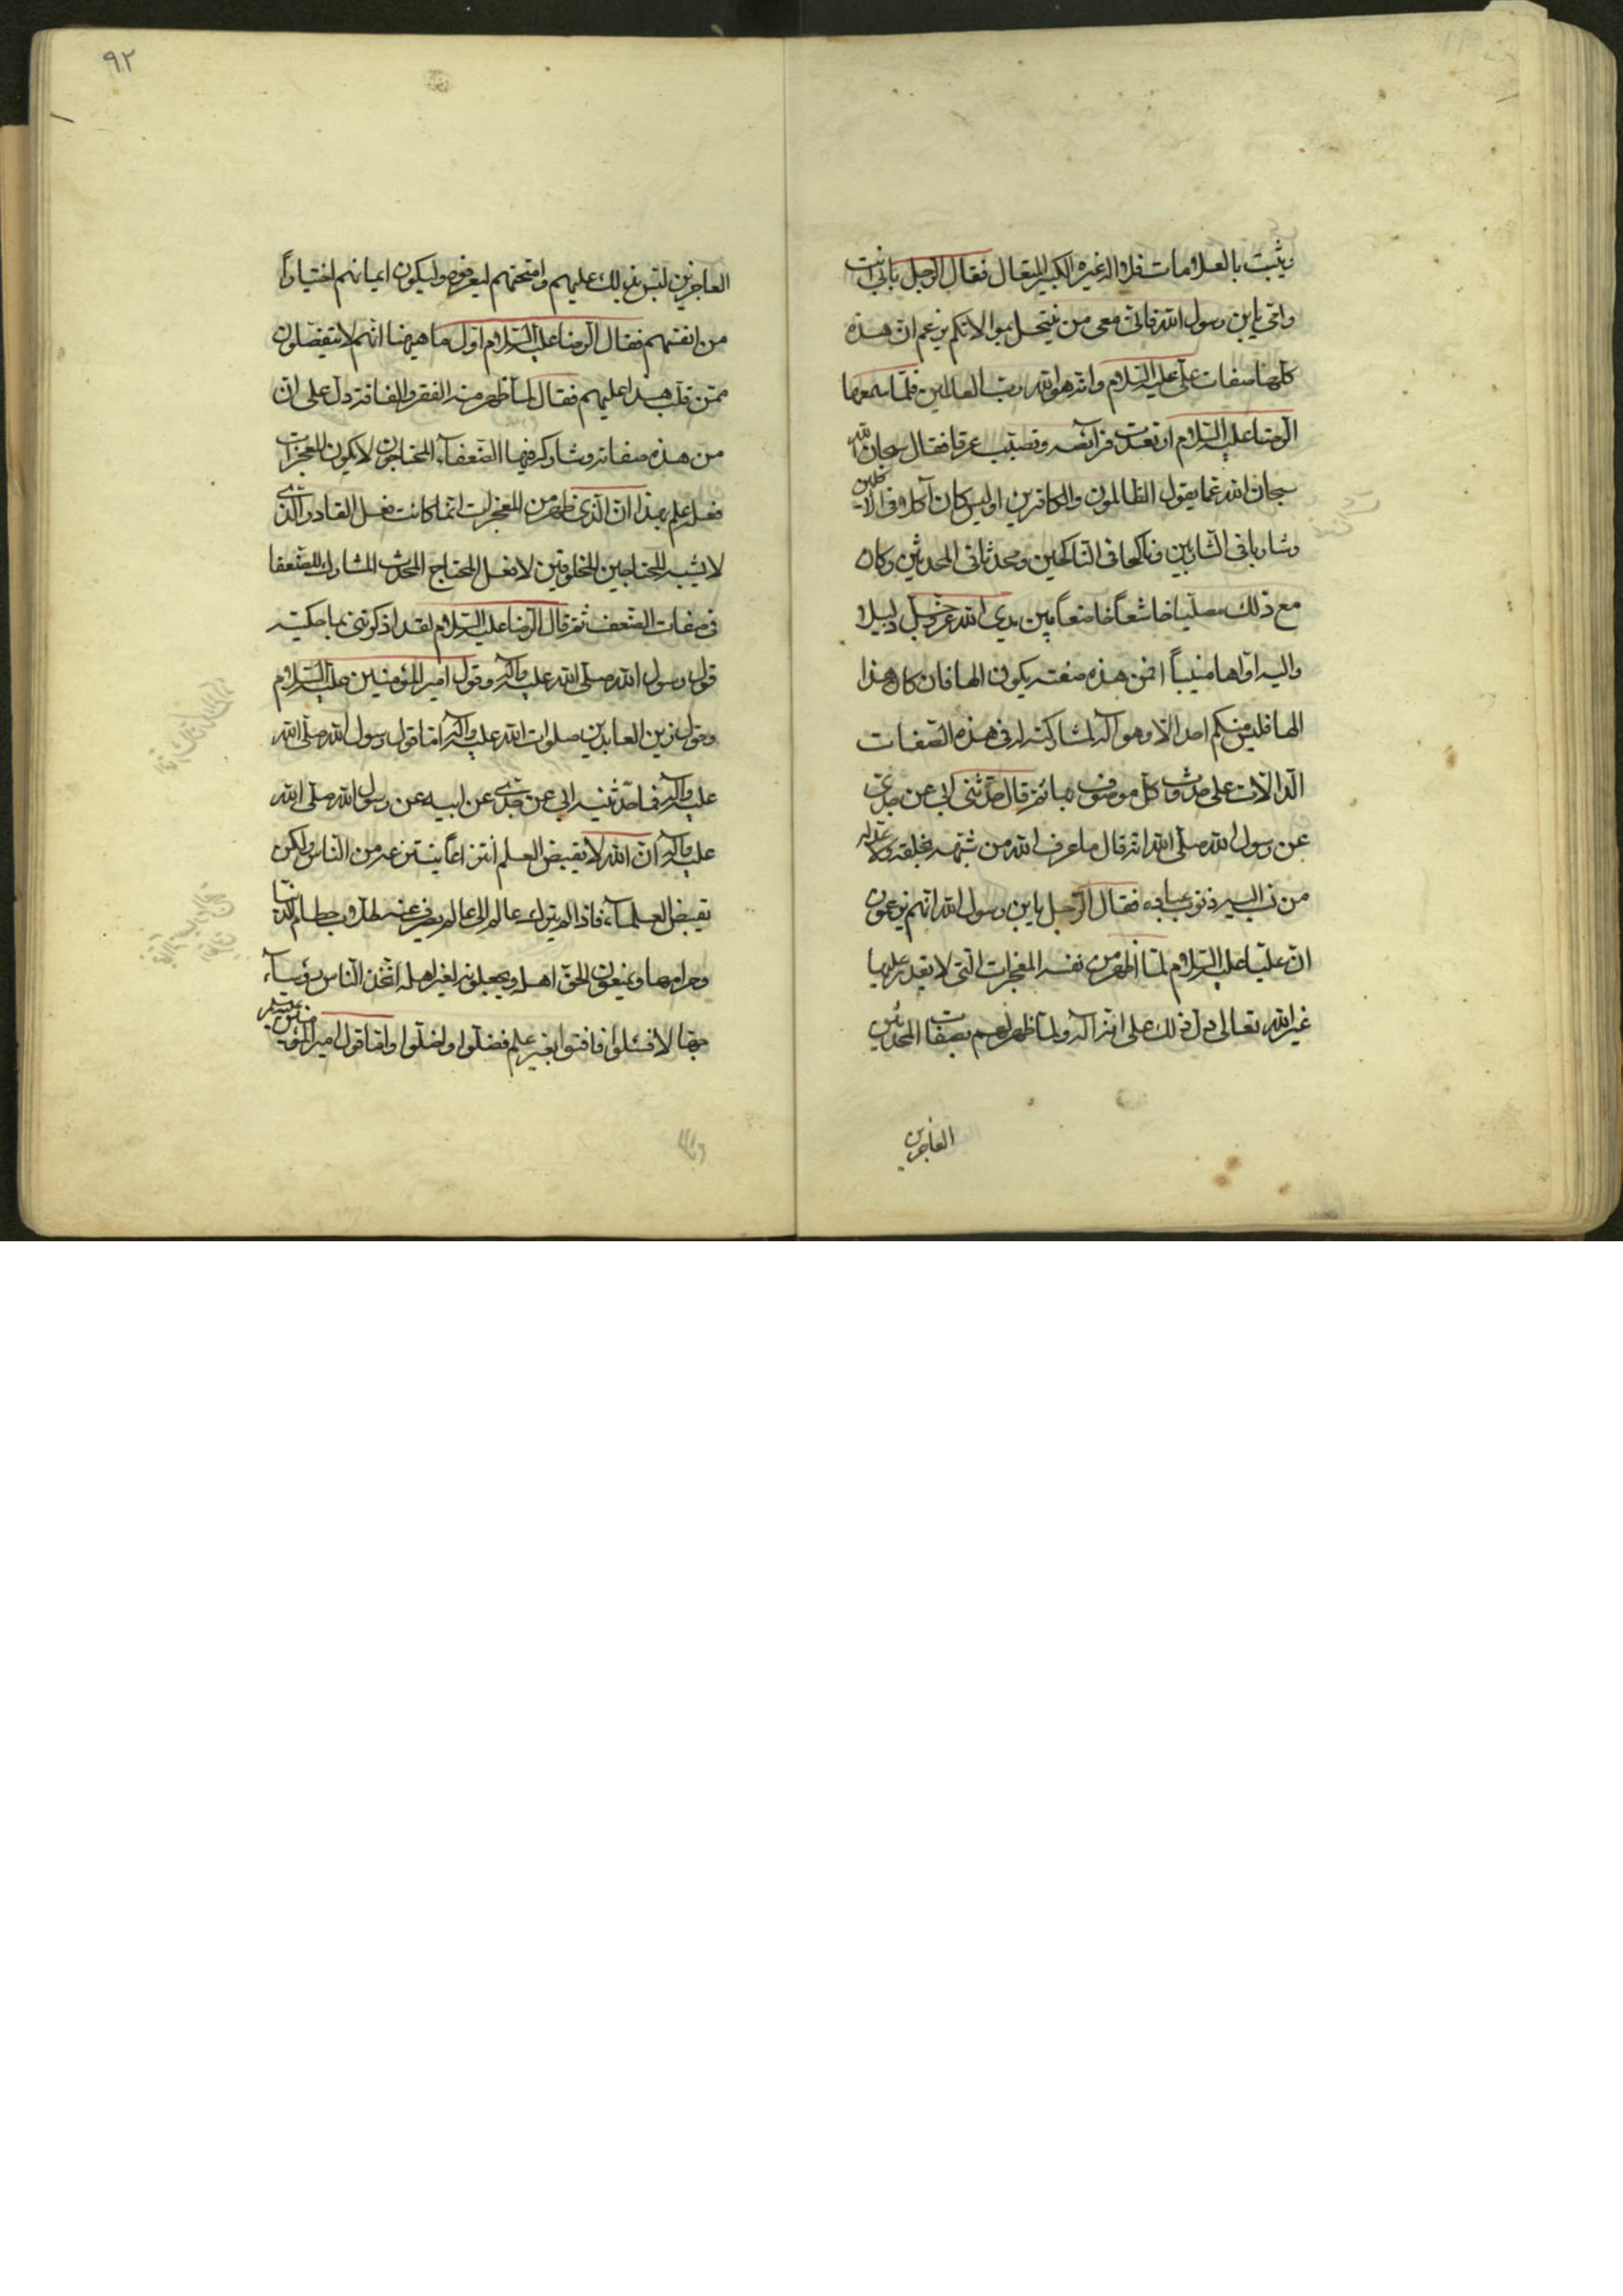 ويثبت بالعلامات فلا اله غيره الكبير المتعال فقال الرجل بابي انت
وامي يابن رسول الله فاني معي من ينتحل بموالاتكم يزعم ان هذه
كلها صفات علي عليه السلام وانه هو الله رب العالمين فلما سمعها
الرضا عليه السلام ارتعدت فرائصه وتصبب عرقا فقال سبحان الله
سبحان الله عما يقول الظالمون والكافرين اوليس كان آكلا في الآكلين
وشاربا في الشاربين وناكحا في الناكحين ومحدثا في المحدثين وكان
مع ذلك مصليا خاشعاً خاضعاً بين يدي الله عز وجل ذليلا
واليه اوّاها منيباً افمن هذه صفته يكون الها فان كان هذا
الها فليس منكم احد الا وهو آله لمشاركته له في هذه الصفات
الدالات على حدوث كل موصوف بها ثم قال حدثني ابي عن جدي
عن رسول الله صلى الله انه قال ما عرف الله من شبّهه بخلقه ولا عدله
من نسب اليه ذنوب عباده فقال الرجل يابن رسول الله انهم يزعمون
ان عليا عليه السلام لما اظهر من نفسه المعجزات التي لا يقدر عليها
غير الله تعالى دل ذلك على انه آله ولما ظهر لهم بصفات المحدثين
العاجزين
٩٢
العاجزين لبّس بذلك عليهم وامتحنهم ليعرفوه وليكون ايمانهم اختياراً
من انفسهم فقال الرضا عليه السلام اول ما هيهنا انهم لا ينفصلون
ممن قلب هذا عليهم فقال لما ظهر منه الفقر والفاقة دل على ان
من هذه صفاته وشاركه فيها الضعفآء المحتاجون لا يكون المعجزات
فعله فعلم بهذا ان الذي ظهر من المعجزات انما كانت فعل القادر الذي
لا يشبه المحتاجين المخلوقين لا فعل المحتاج المحدث المشارك للضعفا
في صفات الضعف ثم قال الرضا عليه السلام لقد اذكرتني بما حكيته
قول رسول الله صلى الله عليه وآله وقول امير المؤمنين عليه السلام
وقول زين العابدين صلوات الله عليه وآله اما قول رسول الله صلى الله
عليه وآله فما حدثنيه ابي عن جدي عن ابيه عن رسول الله صلى الله
عليه وآله ان الله لا يقبض العلم انتزاعاً ينتزعه من الناس ولكن
يقبض العلمآء فاذا لم يترك عالم الى عالم يصرف عنه طلاب حطام الدنيا
وحرامها ويمنعون الحق اهله ويجعلونه لغير اهله اتخذ الناس رؤسآء
جهّالا فسئلوا فافتوا بغير علم فضلّوا واضلّوا واما قول امير المؤمنين عليه السلم